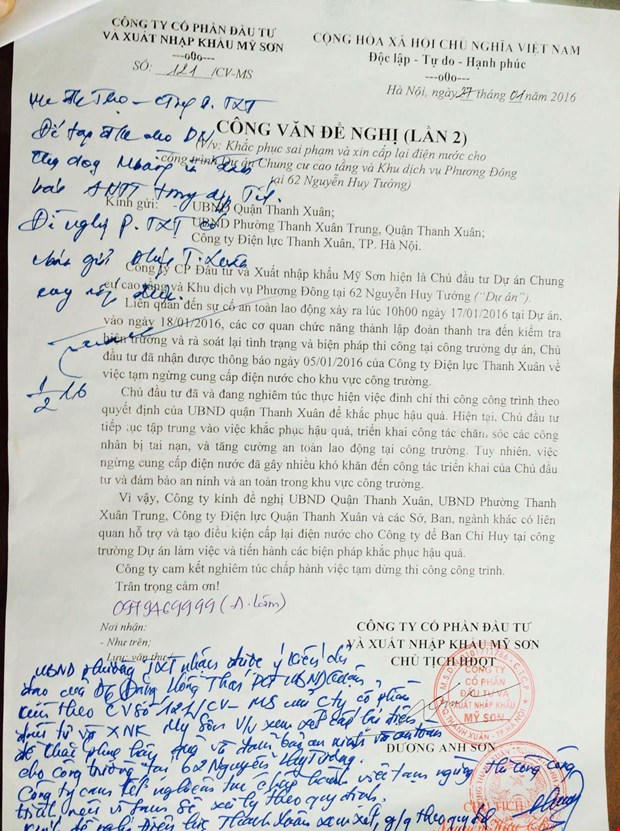 CÔNG TY CỔ PHẦN ĐẦU TƯ
VÀ XUẤT NHẬP KHẨU MỸ SƠN
---o0o---
SỐ: 121 /CV-MS
CỘNG HÒA XÃ HỘI CHỦ NGHĨA VIỆT NAM
Độc lập - Tự do - Hạnh phúc
---o0o---
Hà Nội, ngày 27 tháng 01 năm 2016
CÔNG VĂN ĐỀ NGHỊ (LẦN 2)
(V/v: Khắc phục sai phạm và xin cấp lại điện nước cho
công trình Dự án Chung cư cao tầng và Khu dịch vụ Phương Đông
tại 62 Nguyễn Huy Tưởng)
Kính gửi: - UBND Quận Thanh Xuân;
UBND Phường Thanh Xuân Trung, Quận Thanh Xuân;
Công ty Điện lực Thanh Xuân, TP. Hà Nội.
Công ty CP Đầu tư và Xuất nhập khẩu Mỹ Sơn hiện là Chủ đầu tư Dự án Chung
cư cao tầng và Khu dịch vụ Phương Đông tại 62 Nguyễn Huy Tưởng ("Dự án").
Liên quan đến sự cố an toàn lao động xảy ra lúc 10h00 ngày 17/01/2016 tại Dự án,
vào ngày 18/01/2016, các cơ quan chức năng thành lập đoàn thanh tra đến kiểm tra
hiện trường và rà soát lại tình trạng và biện pháp thi công tại công trường dự án, Chủ
đầu tư đã nhận được thông báo ngày 05/01/2016 của Công ty Điện lực Thanh Xuân về
việc tạm ngừng cung cấp điện nước cho khu vực công trường.
1/2 16
Chủ đầu tư đã và đang nghiêm túc thực hiện việc đình chỉ thi công công trình theo
quyết định của UBND quận Thanh Xuân để khắc phục hậu quả. Hiện tại, Chủ đầu tư
tiếp tục tập trung vào việc khắc phục hậu quả, triển khai công tác chăm sóc các công
nhân bị tai nạn, và tăng cường an toàn lao động tại công trường. Tuy nhiên, việc
ngừng cung cấp điện nước đã gây nhiều khó khăn đến công tác triển khai của Chủ đầu
tư và đảm bảo an ninh và an toàn trong khu vực công trường.
Vì vậy, Công ty kính đề nghị UBND Quận Thanh Xuân, UBND Phường Thanh
Xuân Trung, Công ty Điện lực Quận Thanh Xuân và các Sở, Ban, ngành khác có liên
quan hỗ trợ và tạo điều kiện cấp lại điện nước cho Công ty để Ban Chỉ Huy tại công
trường Dự án làm việc và tiến hành các biện pháp khắc phục hậu quả.
Công ty cam kết nghiêm túc chấp hành việc tạm dừng thi công công trình.
Trân trọng cảm ơn!
Nơi nhận:
- Như trên;
- Lưu: văn thư
CÔNG TY CỔ PHẦN ĐẦU TƯ
VÀ XUẤT NHẬP KHẨU MỸ SƠN
CHỦ TỊCH HĐQT
CÔNG TY
CỔ PHẦN
ĐẦU TƯ VÀ
XUẤT NHẬP KHẨU
MỸ SƠN
DƯƠNG ANH SƠN
UBND phường TXT nhận được ý kiến chỉ
đạo của Đ/c Đặng Hồng Thái PCT UBND Quận
kèm theo CV số 121/CV-MS của Cty cổ phần
đầu tư và XNK Mỹ Sơn V/v xem xét cấp lại điện
để khắc phục hậu quả và đảm bảo an ninh và an toàn
cho công trường tại 62 Nguyễn Huy Tưởng.
Công ty cam kết nghiêm túc chấp hành việc tạm ngừng thi công công
trình nếu vi phạm sẽ xử lý theo quy định.
Kính đề nghị Điện lực Thanh Xuân xem xét, g/q theo quy định
CHỦ TỊCH